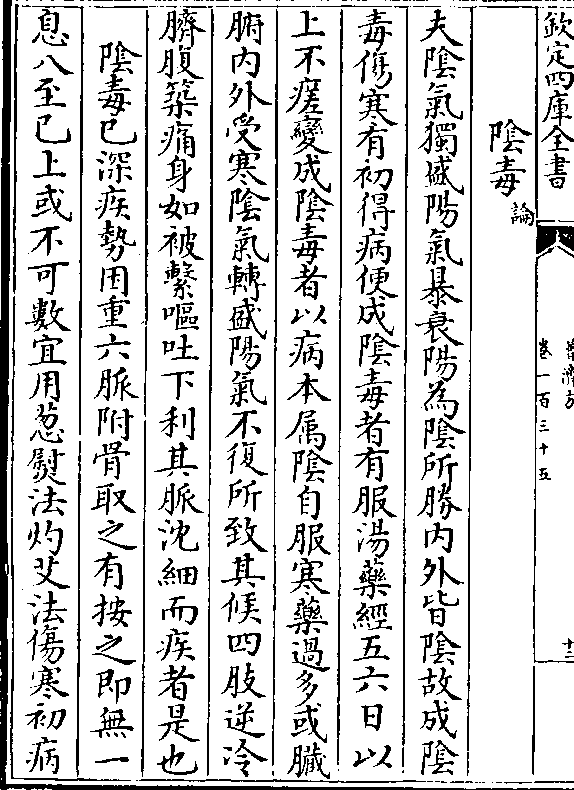 欽定四庫全書
普濟方
卷一百三十五
十二
陰毒論
夫陰氣獨盛陽氣暴衰陽為陰所勝内外皆陰故成陰
毒傷寒有初得病便成陰毒者有服湯藥經五六日以
上不瘥變成陰毒者以病本属陰自服寒藥過多或臟
腑内外受寒陰氣轉盛陽氣不復所致其候四肢逆冷
臍腹築痛身如被繫嘔吐下利其脈沈細而疾者是也
陰毒已深疾勢困重六脈附骨取之有按之即無一
息八至已上或不可數宜用葱熨法灼艾法傷寒初病